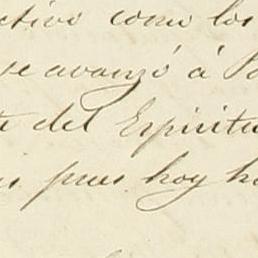 ctivo como los
se avanzó á
del Espiritu
pues hoy